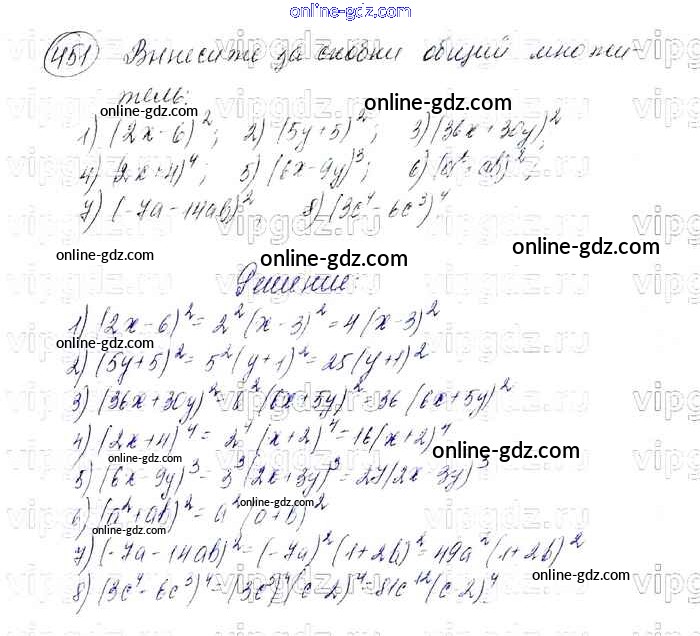 online-gdz.com
451 Вынесите за скобки общий множи-
тель:
online-gdz.com
1) (2x-6)²; 2) (5y+5)²; 3) (36x+30y)²;
4) (2x+4)⁴; 5) (6x-9y)³; 6) (a²+ab)²;
7) (-7a-14ab)² 8) (3c⁴-6c³)⁴.
online-gdz.com
online-gdz.com
online-gdz.com
Решение:
1) (2x-6)² = 2²(x-3)² = 4(x-3)²
online-gdz.com
2) (5y+5)² = 5²(y+1)² = 25(y+1)²
3) (36x+30y)² = 6²(6x+5y)² = 36(6x+5y)²
4) (2x+4)⁴ = 2⁴(x+2)⁴ = 16(x+2)⁴
online-gdz.com
online-gdz.com
5) (6x-9y)³ = 3³(2x+3y)³ = 27(2x-3y)³
online-gdz.com
6) (a²+ab)² = a²(a+b)²
online-gdz.com
7) (-7a-14ab)² = (-7a)²(1+2b)² = 49a²(1+2b)²
online-gdz.com
8) (3c⁴-6c³)⁴ = (3c³)⁴(c-2)⁴ = 81c¹²(c-2)⁴
online-gdz.com